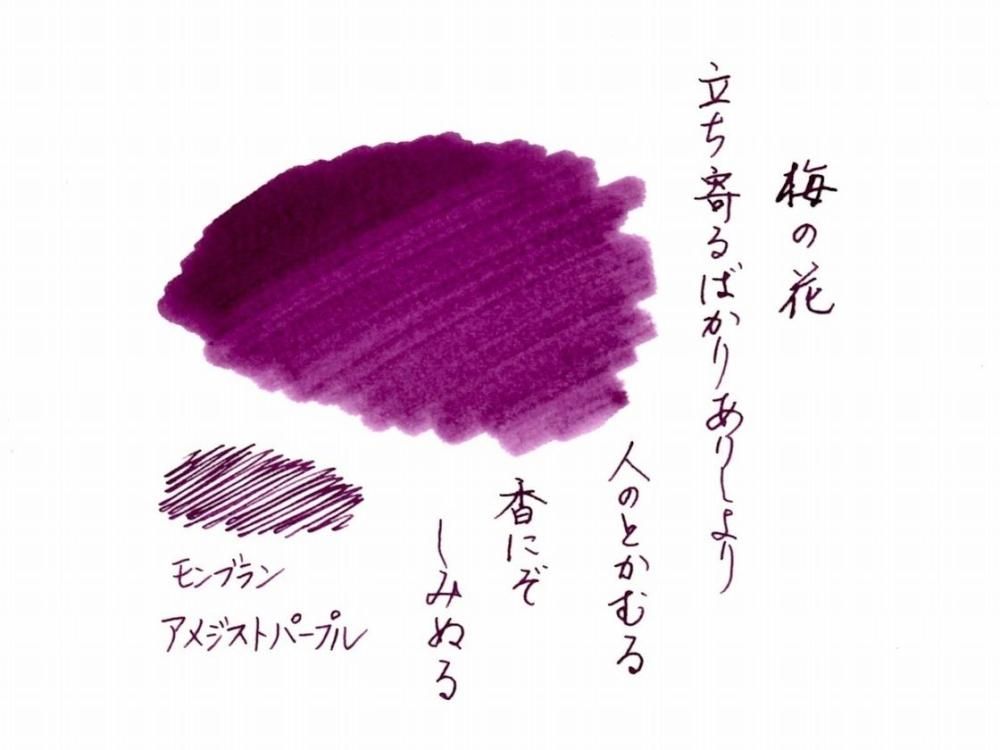 梅の花
立ち寄るばかりありしより
人のとかむる
香にぞ
しみぬる
モンブラン
アメジストパープル